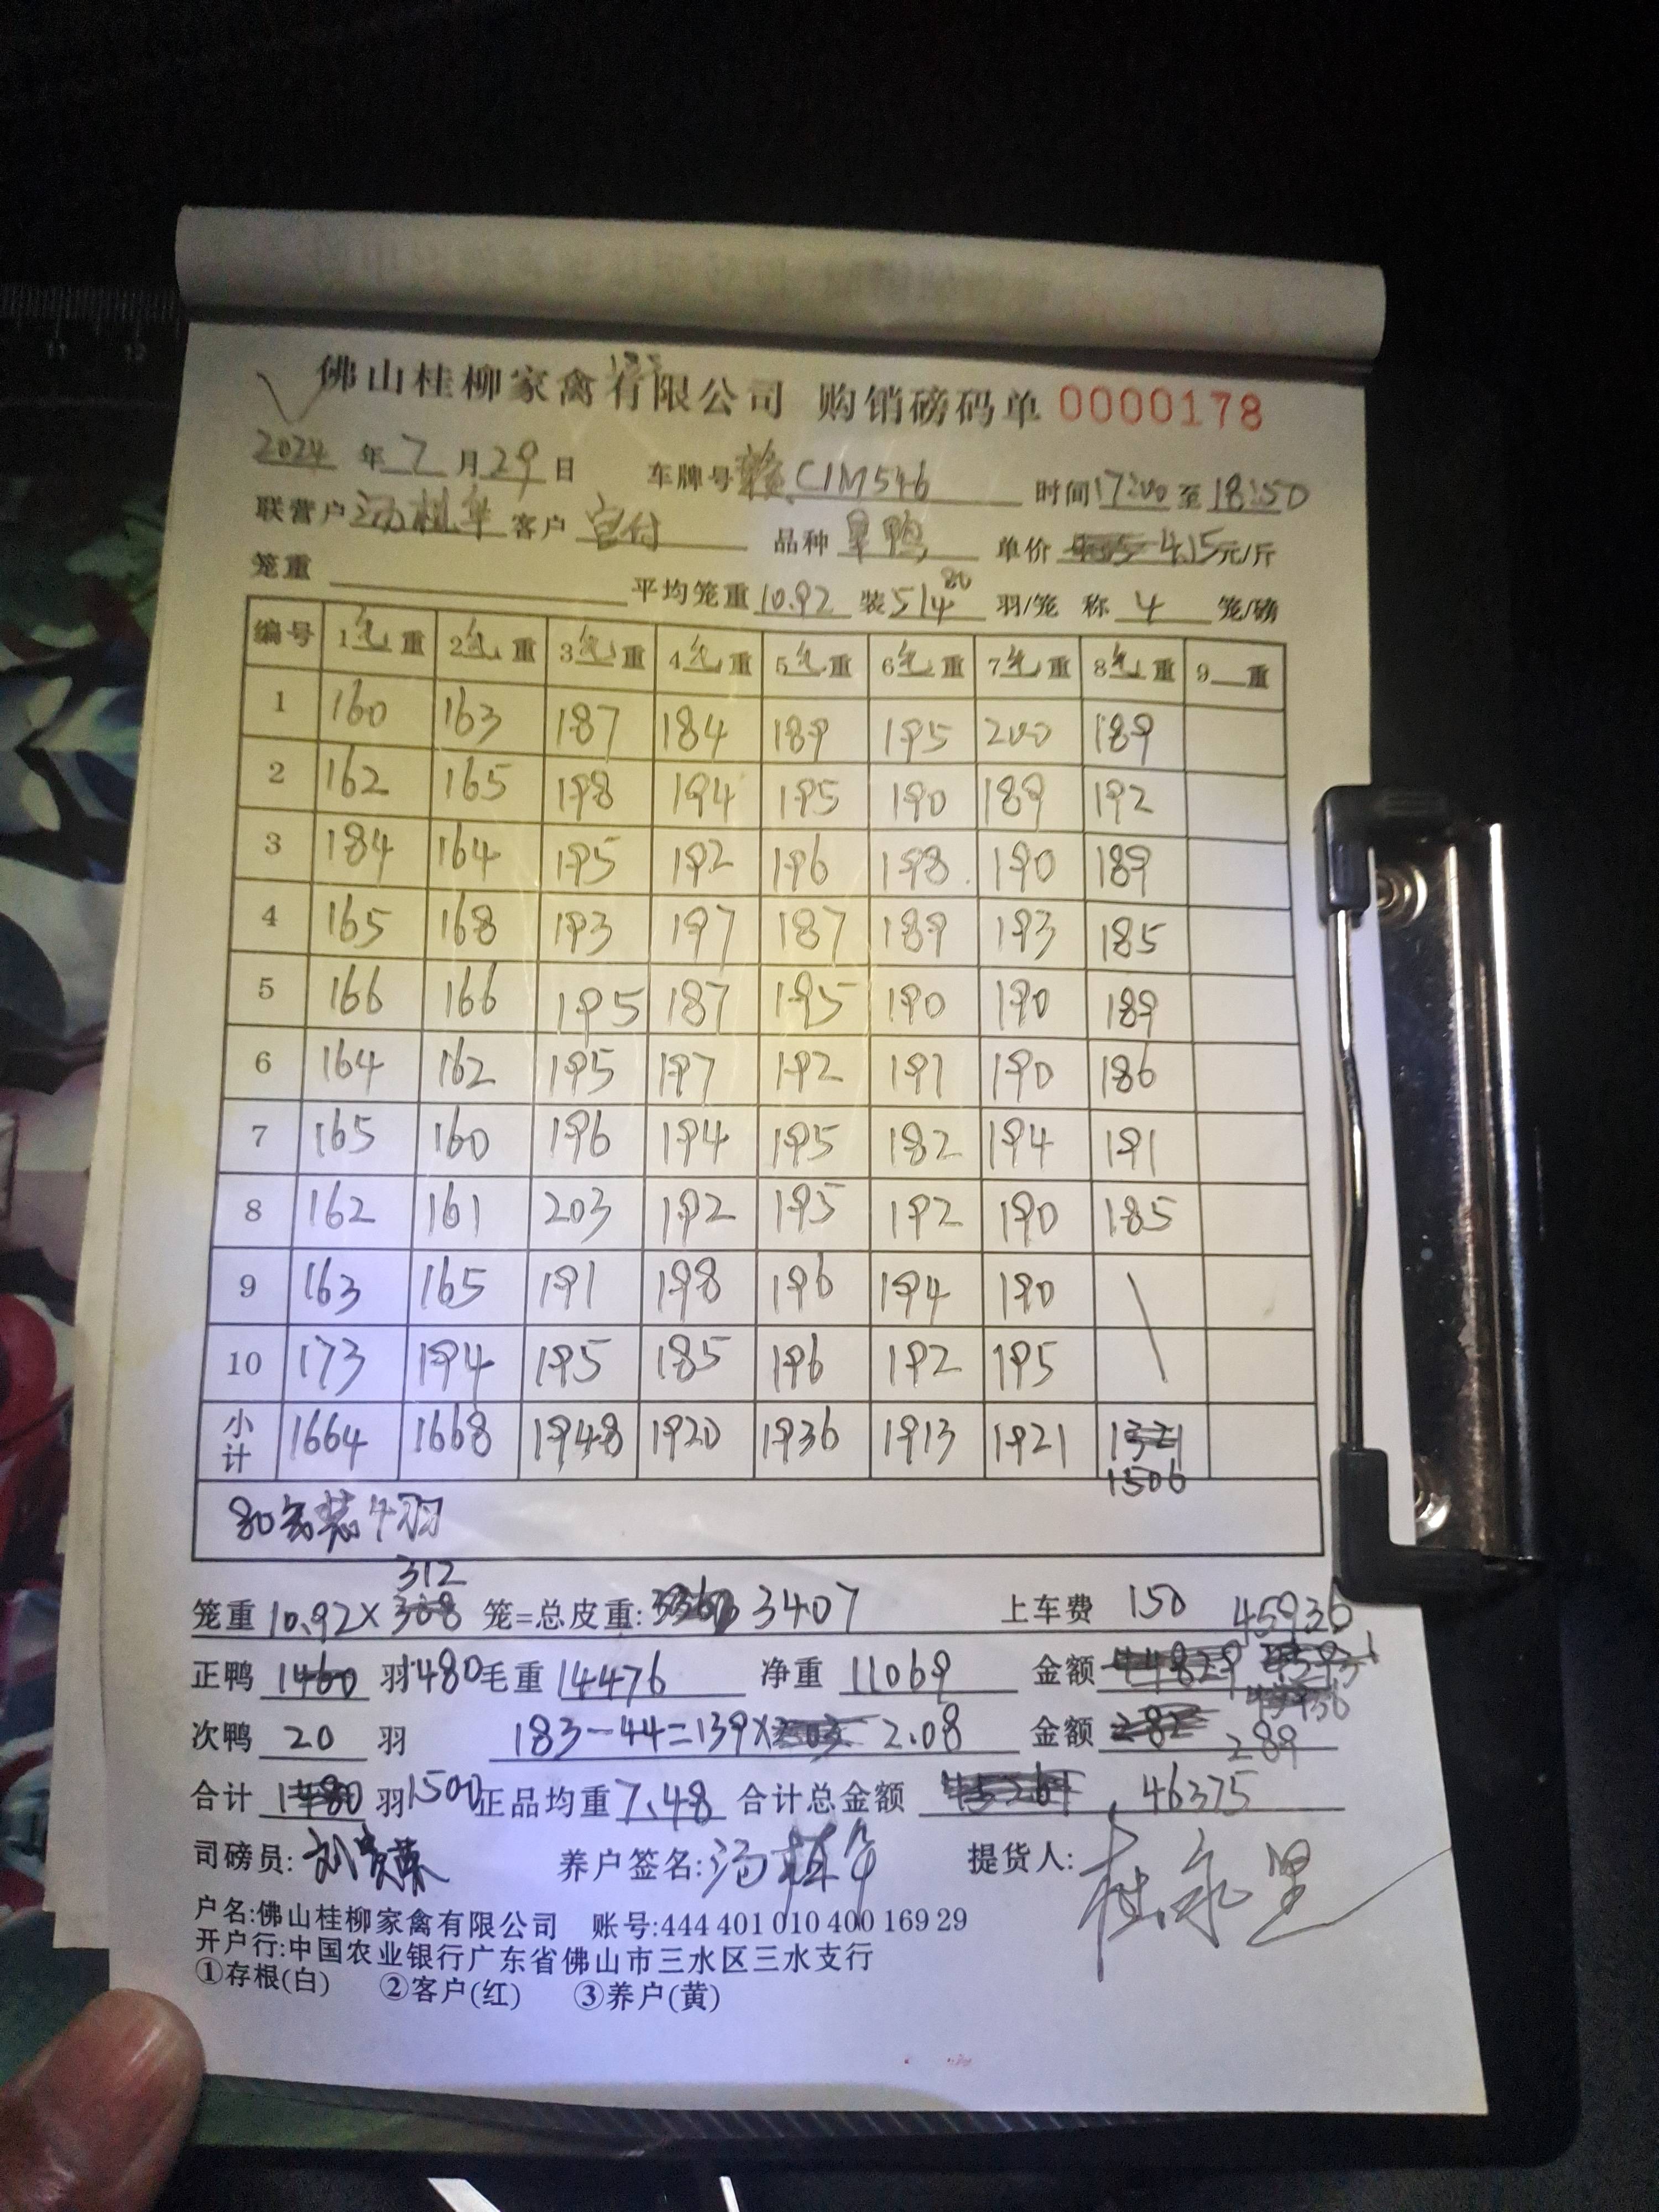 佛山桂柳家禽有限公司 购销磅码单 0000178
2024 年 7 月 29 日 车牌号 赣C1M546 时间 17:00 至 18:50
联营户 汤植华 客户 客户 品种 鸭 单价 4.15 元/斤
笼重 平均笼重 10.92 装 5/4 80 羽/笼 称 4 笼/磅
编号 1毛重 2毛重 3毛重 4毛重 5毛重 6毛重 7毛重 8毛重 9 重
1 160 163 187 184 189 195 200 189
2 162 165 198 194 195 190 189 192
3 184 164 195 192 196 198 190 189
4 165 168 193 197 187 189 193 185
5 166 166 195 187 195 190 190 189
6 164 162 195 197 192 191 190 186
7 165 160 196 194 195 182 194 191
8 162 161 203 192 195 192 190 185
9 163 165 191 198 196 194 190
10 173 194 195 185 196 192 195
小计 1664 1668 1948 1920 1936 1913 1921 1321
1506
80 装4羽
312
笼重 10.92×308 笼=总皮重: 3407 上车费 150 45936
正鸭 1460 羽 1480 毛重 14476 净重 11069 金额 44829
次鸭 20 羽 183-44=139× 2.08 金额 282 289
合计 1480 羽 1500 正品均重 7.48 合计总金额 46375
司磅员: 养户签名: 汤植华 提货人: 杜永里
户名:佛山桂柳家禽有限公司 账号:444 401 010 400 169 29
开户行:中国农业银行广东省佛山市三水区三水支行
①存根(白) ②客户(红) ③养户(黄)